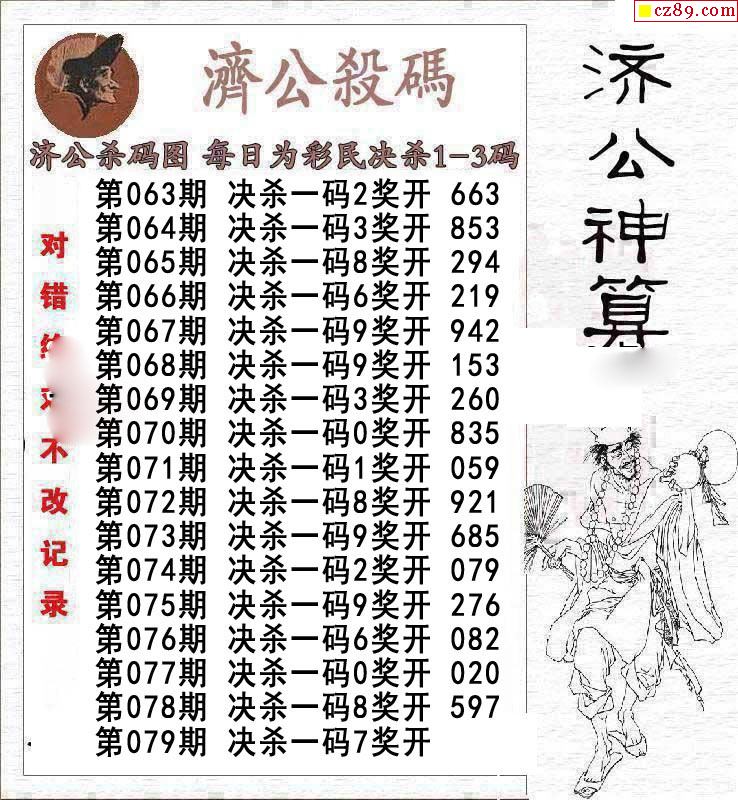 cz89.com
濟公殺碼
济公杀码图 每日为彩民决杀1-3码
第063期 决杀一码2奖开 663
第064期 决杀一码3奖开 853
第065期 决杀一码8奖开 294
第066期 决杀一码6奖开 219
第067期 决杀一码9奖开 942
第068期 决杀一码9奖开 153
第069期 决杀一码3奖开 260
第070期 决杀一码0奖开 835
第071期 决杀一码1奖开 059
第072期 决杀一码8奖开 921
第073期 决杀一码9奖开 685
第074期 决杀一码2奖开 079
第075期 决杀一码9奖开 276
第076期 决杀一码6奖开 082
第077期 决杀一码0奖开 020
第078期 决杀一码8奖开 597
第079期 决杀一码7奖开
对错不改记录
济公神算